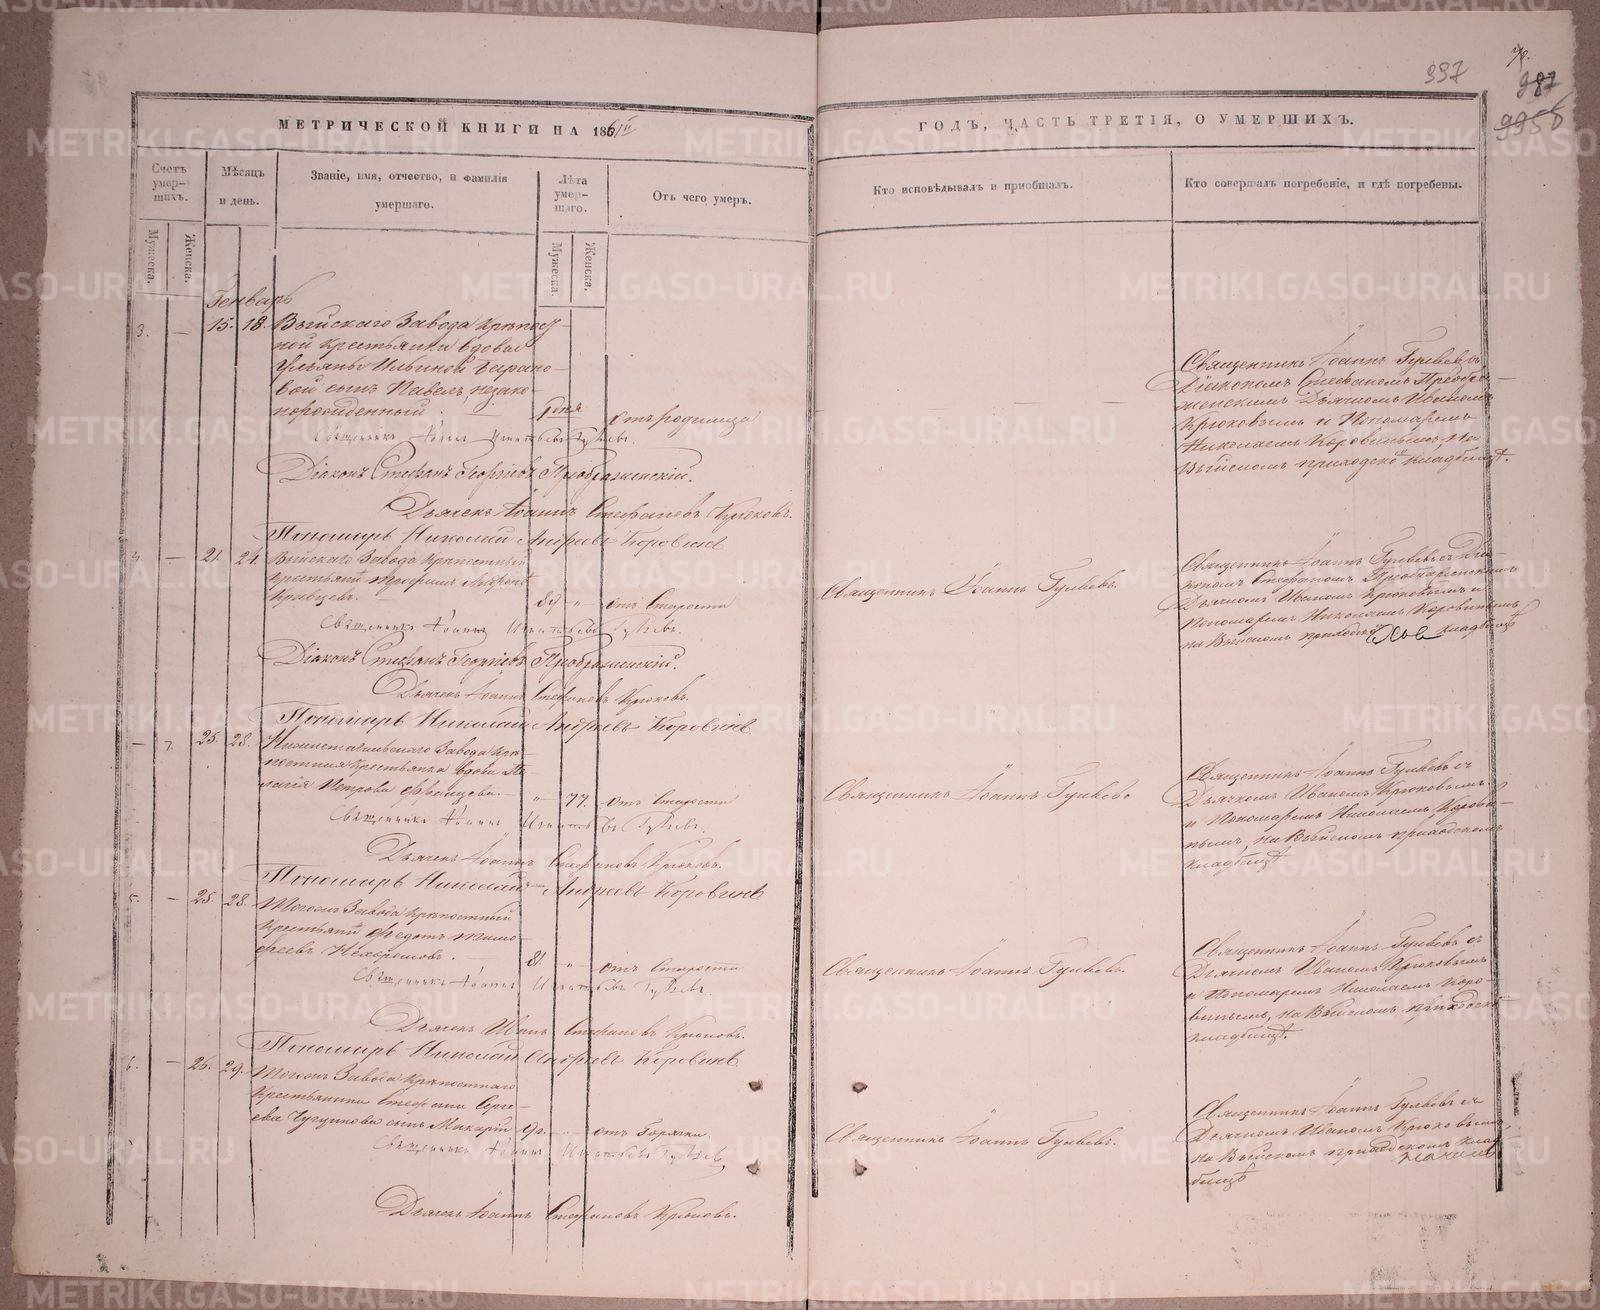 997
987
995б
МЕТРИЧЕСКОЙ КНИГИ НА 1861й
ГОДЪ, ЧАСТЬ ТРЕТІЯ, О УМЕРШИХЪ.
Счетъ умер-шихъ.
Мѣсяцъ и день.
Званіе, имя, отчество, и фамилія умершаго.
Лѣта умер-шаго.
Отъ чего умеръ.
Кто исповѣдывалъ и пріобщалъ.
Кто совершалъ погребеніе, и гдѣ погребены.
Мужеска.
Женска.
Мужеска.
Женска.
Генварь
3. — 15. 18. Выйскаго Завода крѣпост-
ной крестьянки вдовы
Ульяны Ильиной Барано-
вой сынъ Павелъ, незако-
норожденный. — 1 дня отъ родимца
Священникъ Іоаннъ Игнатьевъ Гуляевъ.
Діаконъ Стефанъ Георгіевъ Преображенскій.
Дьячекъ Іоаннъ Стефановъ Крюковъ.
Пономарь Николай Андреевъ Коровинъ
Священникъ Іоаннъ Гуляевъ съ
Діакономъ Стефаномъ Преобра-
женскимъ Дьячкомъ Иваномъ
Крюковымъ и Пономаремъ
Николаемъ Коровинымъ на
Выйскомъ приходск. кладбищѣ.
4. — 21. 24. Выйскаго Завода Крѣпостный
крестьянин Трофимъ
Кравцевъ. — — отъ Старости
Священникъ Іоаннъ Игнатьевъ Гуляевъ.
Діаконъ Стефанъ Георгіевъ Преображенскій.
Дьячекъ Іоаннъ Стефановъ Крюковъ.
Пономарь Николай Андреевъ Коровинъ
Священникъ Іоаннъ Гуляевъ.
Священникъ Іоаннъ Гуляевъ съ Діа-
кономъ Стефаномъ Преображенскимъ
Дьячкомъ Иваномъ Крюковымъ и
Пономаремъ Николаемъ Коровинымъ
на Выйскомъ приходскомъ кладбищѣ
— 7. 25. 28. Нижнетагильскаго Завода Крѣ-
постная Крестьянка вдова Пе-
лагія Петрова — " 77. отъ Старости
Священникъ Іоаннъ Игнатьевъ Гуляевъ.
Дьячекъ Іоаннъ Стефановъ Крюковъ.
Пономарь Николай Андреевъ Коровинъ
Священникъ Іоаннъ Гуляевъ
Священникъ Іоаннъ Гуляевъ съ
Дьячкомъ Иваномъ Крюковымъ
и Пономаремъ Николаемъ Корови-
нымъ, на Выйскомъ приходскомъ
кладбищѣ
5. — 25. 28. Тогожъ Завода Крѣпостный
Крестьянин Федотъ Тимо-
феевъ — 81. " отъ Старости
Священникъ Іоаннъ Игнатьевъ Гуляевъ.
Дьячекъ Иванъ Стефановъ Крюковъ.
Пономарь Николай Андреевъ Коровинъ
Священникъ Іоаннъ Гуляевъ.
Священникъ Іоаннъ Гуляевъ съ
Дьячкомъ Иваномъ Крюковымъ
и Пономаремъ Николаемъ Коро-
винымъ, на Выйскомъ приходско-
кладбищѣ.
6. — 26. 29. Тогожъ Завода Крѣпостнаго
Крестьянина Стефана Серге-
ева сынъ Макарій 9 г. отъ Горячки.
Священникъ Іоаннъ Игнатьевъ Гуляевъ
Дьячекъ Іоаннъ Стефановъ Крюковъ.
Священникъ Іоаннъ Гуляевъ.
Священникъ Іоаннъ Гуляевъ съ
Дьячкомъ Иваномъ Крюковымъ,
на Выйскомъ приходскомъ клад-
бищѣ
METRIKI.GASO-URAL.RU